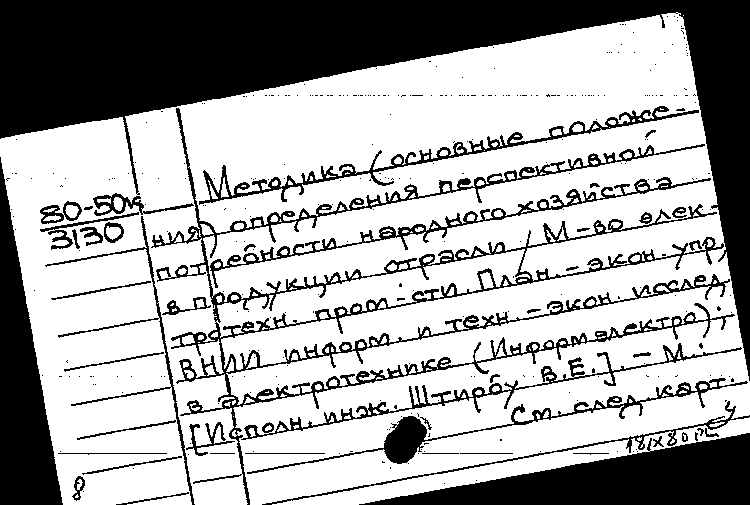 Методика (основные положе-
80-50к
3130
ния) определения перспективной
потребности народного хозяйства
в продукции отрасли / М-во элек-
тротехн. пром-сти. План.-экон. упр,
ВНИИ информ. и техн.-экон. исслед.
в электротехнике (Информэлектро);
[Исполн. инж. Штирбу В.Е.]. - М.:
См. след. карт.
8